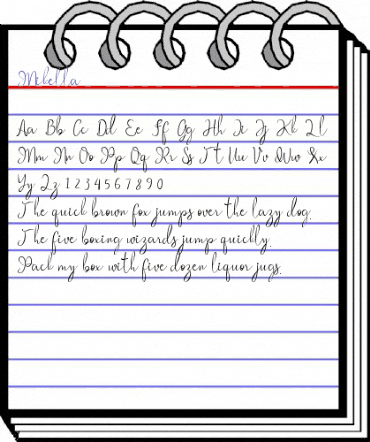 Mibella
Aa Bb Cc Dd Ee Ff Gg Hh Ii Jj Kk Ll
Mm Nn Oo Pp Qq Rr Ss Tt Uu Vv Ww Xx
Yy Zz 1 2 3 4 5 6 7 8 9 0
The quick brown fox jumps over the lazy dog.
The five boxing wizards jump quickly.
Pack my box with five dozen liquor jugs.